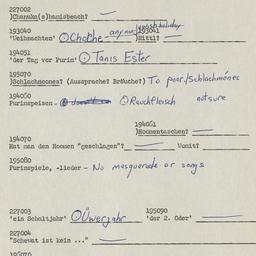 227002
)Chanuka(s)hanisbench? —
193040 any nu? Jewish holiday )193041
'Weihnachten' Choththe )Hittl? —
194051
'der Tag vor Purim' Tanis Ester
195070
)Schlachmones? (Aussprache? Bräuche?) To poor/Schlachmónes
194060
Purimspeisen - Rauchfleisch not sure
194061
)Homentaschen? —
194070
Hat man den Hoomen "geschlagen"? — Womit?
195080
Purimspiele, -lieder - No masquerade or songs
227003 195090
'ein Schaltjahr' Üwerjahr 'der 2. Oder' —
227004
"Schewat ist kein ..." —
195070